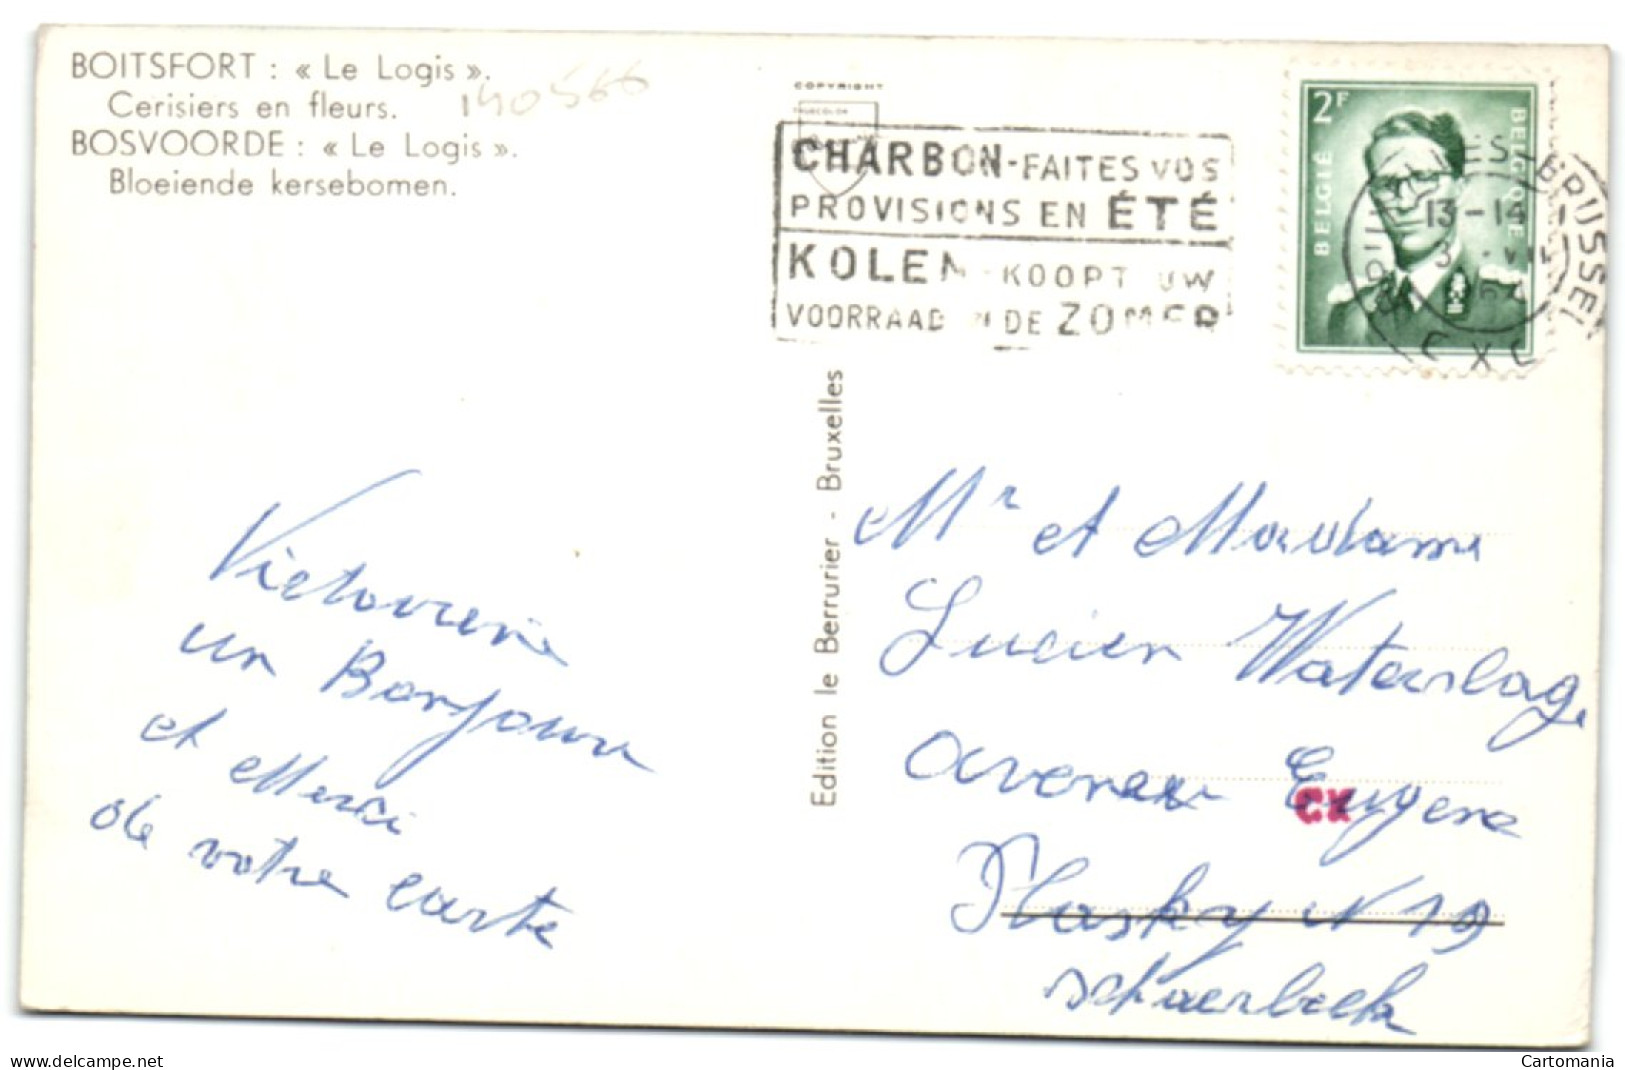 BOITSFORT : « Le Logis ».
Cerisiers en fleurs.
BOSVOORDE : « Le Logis ».
Bloeiende kersebomen.
140566
COPYRIGHT
CHARBON-FAITES VOS
PROVISIONS EN ÉTÉ
KOLEN - KOOPT UW
VOORRAAD IN DE ZOMER
2F
BELGIË
BELGIQUE
BRUSSEL
13-14
Edition le Berrurier - Bruxelles
Victorine
un Bonjour
et Merci
de votre carte
Mr et Madame
Lucien Waterlag
avenue Eugene
CX
Plasky N 19
Schaerbeek
Cartomania